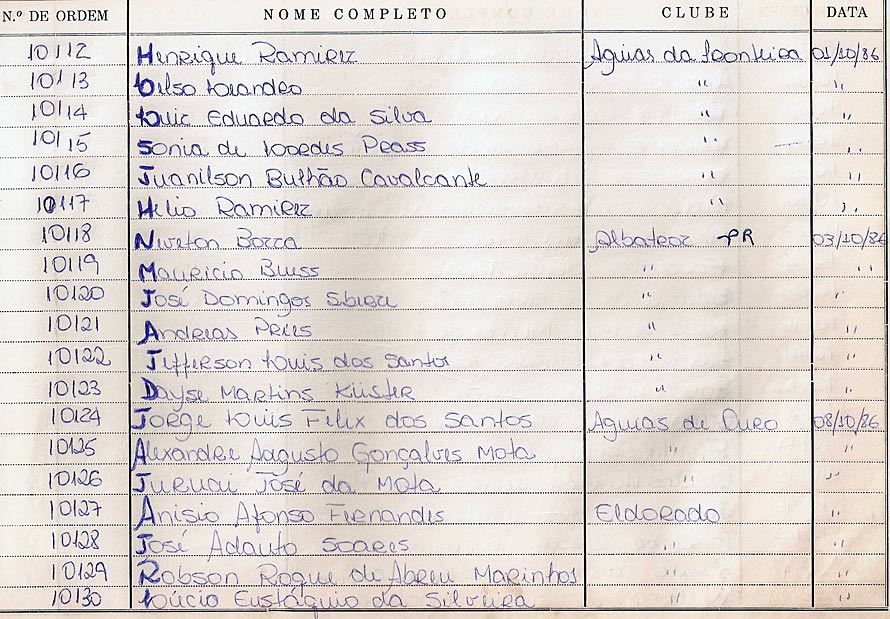 N.º DE ORDEM NOME COMPLETO CLUBE DATA
10112 Henrique Ramirez Aguias da fronteira 01/10/86
10113 Leandro " "
10114 Luiz Eduardo da Silva " "
10115 Sonia de Lourdes " "
10116 Juanilson Bulhão Cavalcante " "
10117 Helio Ramirez " "
10118 Newton Bozza Albatroz PR 03/10/86
10119 Mauricio " "
10120 José Domingos " "
10121 Andreas " "
10122 Jefferson Luis dos Santos " "
10123 Dayse Martins Küster " "
10124 Jorge Luis Felix dos Santos Aguias de Ouro 08/10/86
10125 Alexandre Augusto Gonçalves Mota " "
10126 José da Mota " "
10127 Anisio Afonso Fernandes Eldorado "
10128 José Adauto Soares " "
10129 Robson Roque de Abreu Marinhos " "
10130 Lúcio Eustáquio da Silveira " "